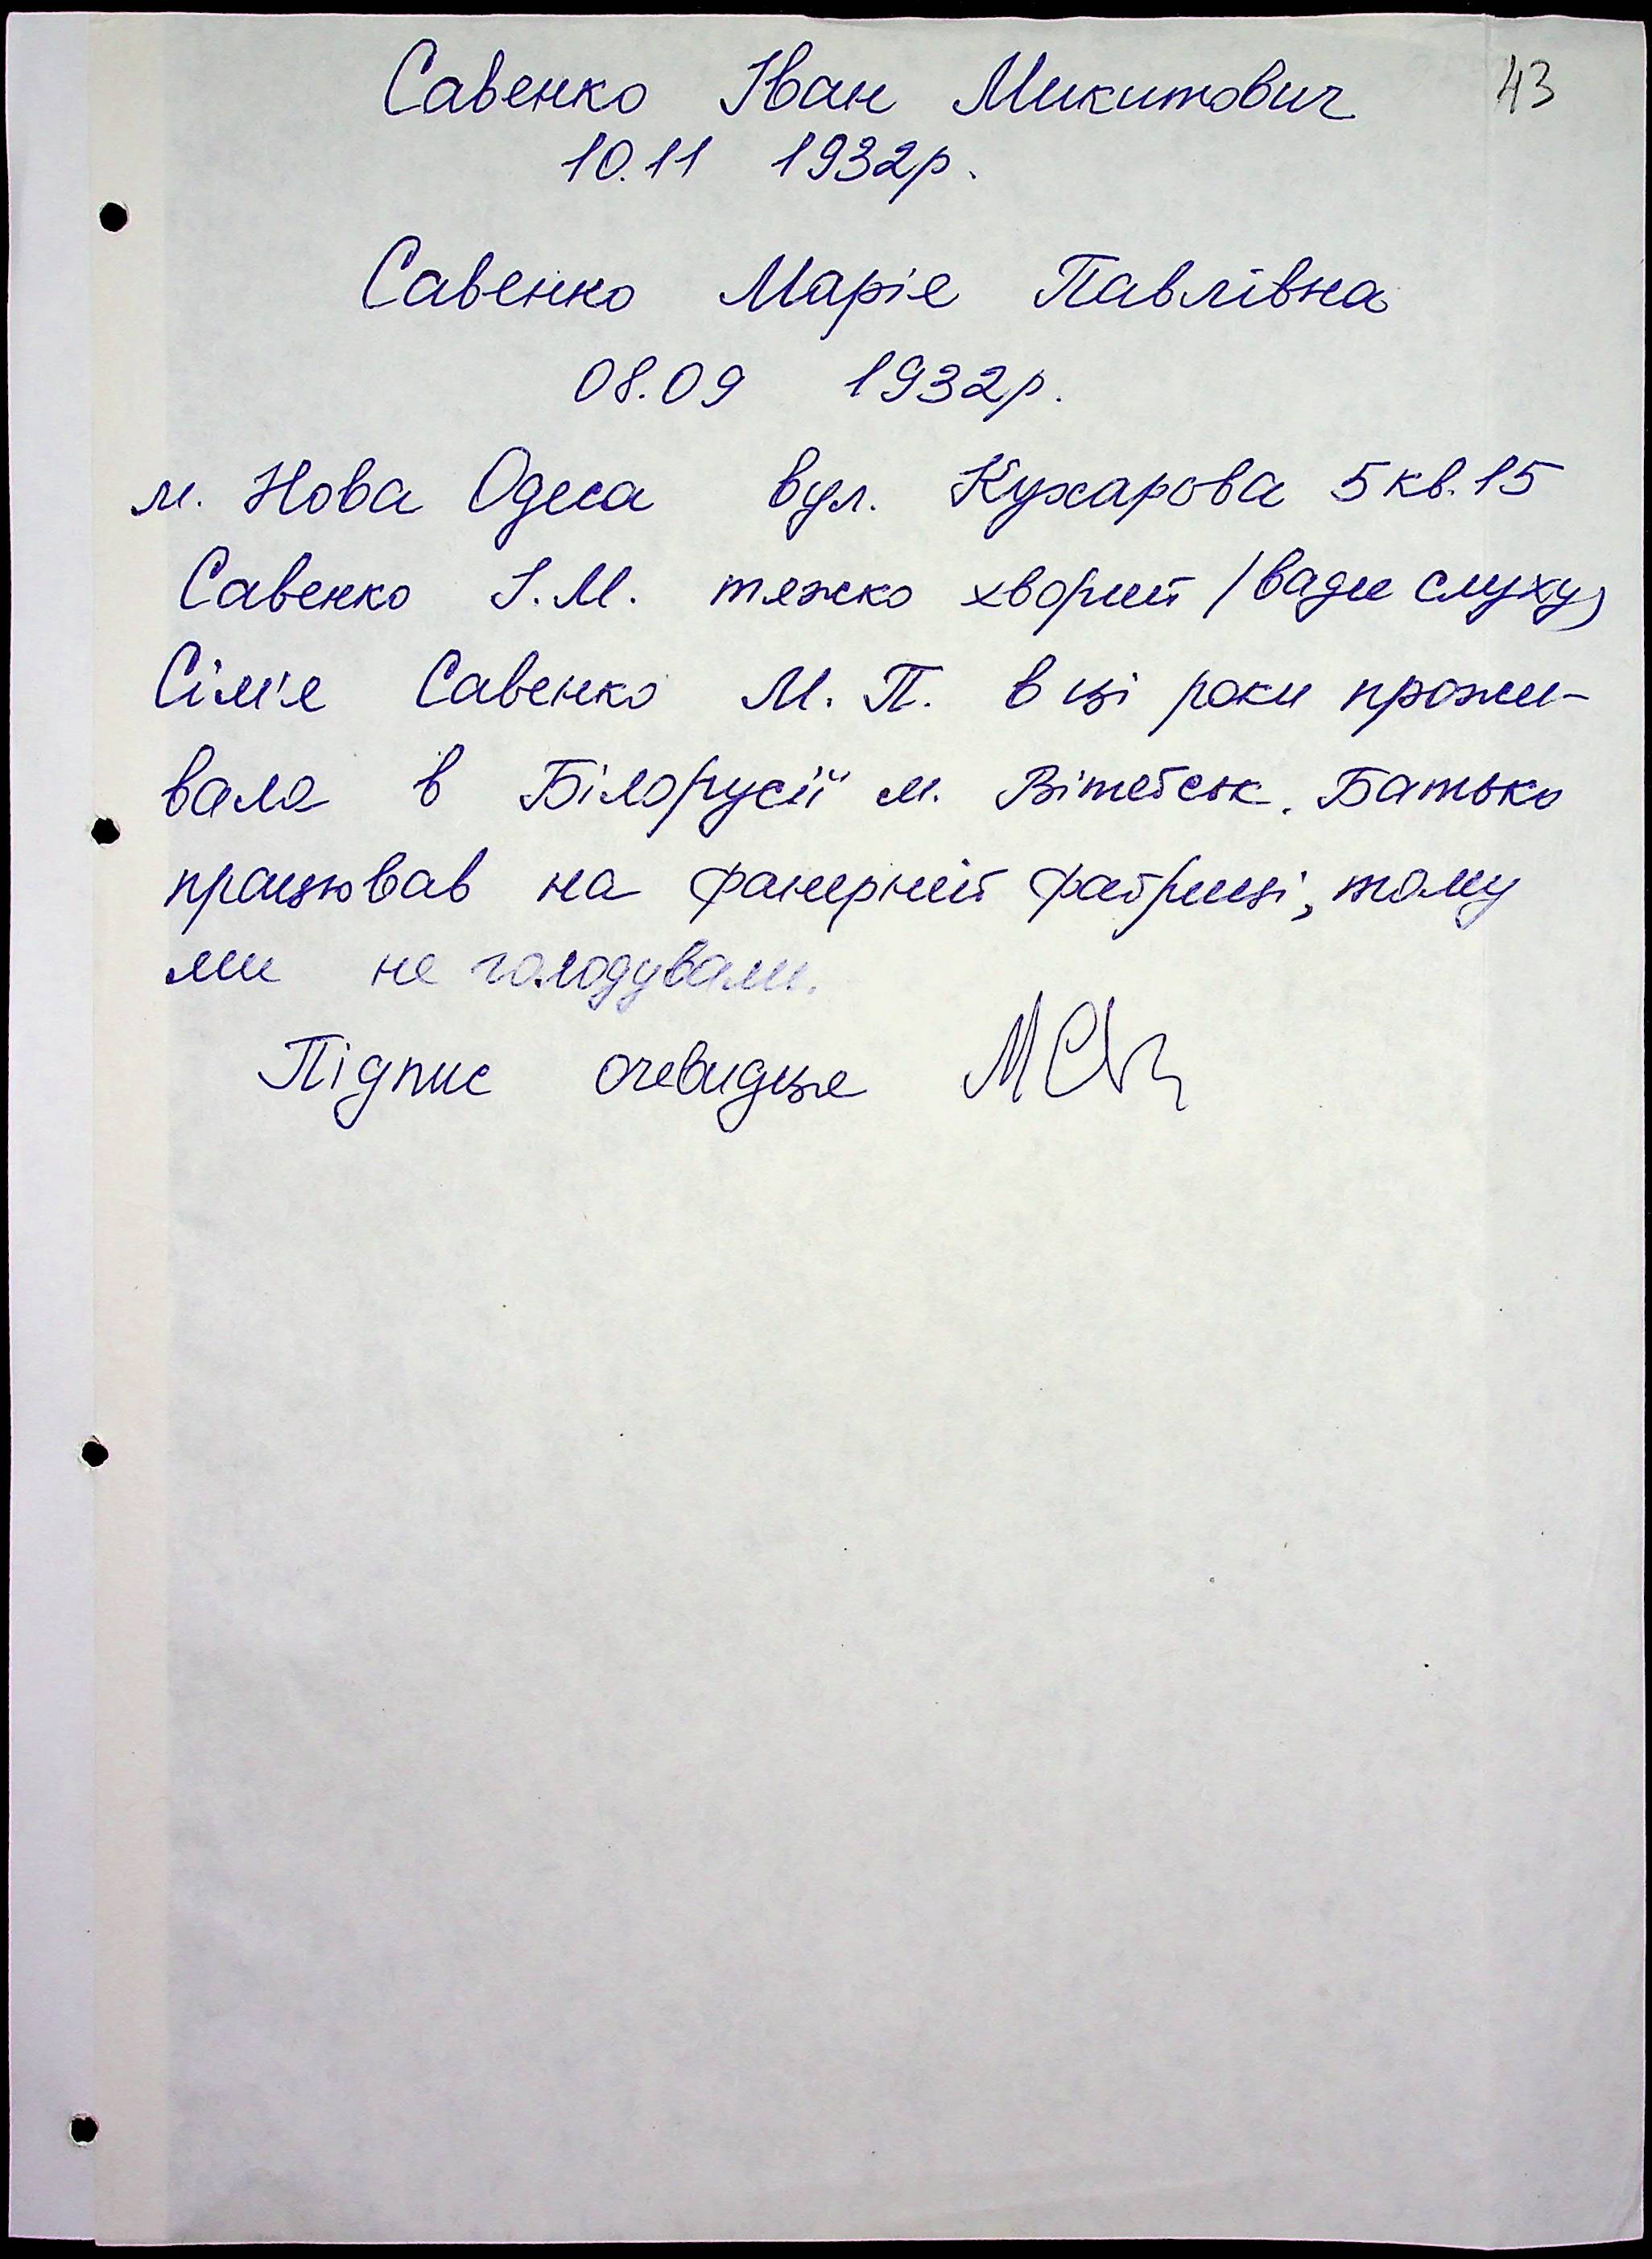 43
Савенко Іван Микитович
10.11 1932р.
Савенко Марія Павлівна
08.09 1932р.
м. Нова Одеса вул. Кухарова 5 кв. 15
Савенко І. М. тяжко хворий /вади слуху)
Сім'я Савенко М. П. в ці роки прожи-
вала в Білорусії м. Вітебськ. Батько
працював на фанерній фабриці, тому
ми не голодували.
Підпис очевидця